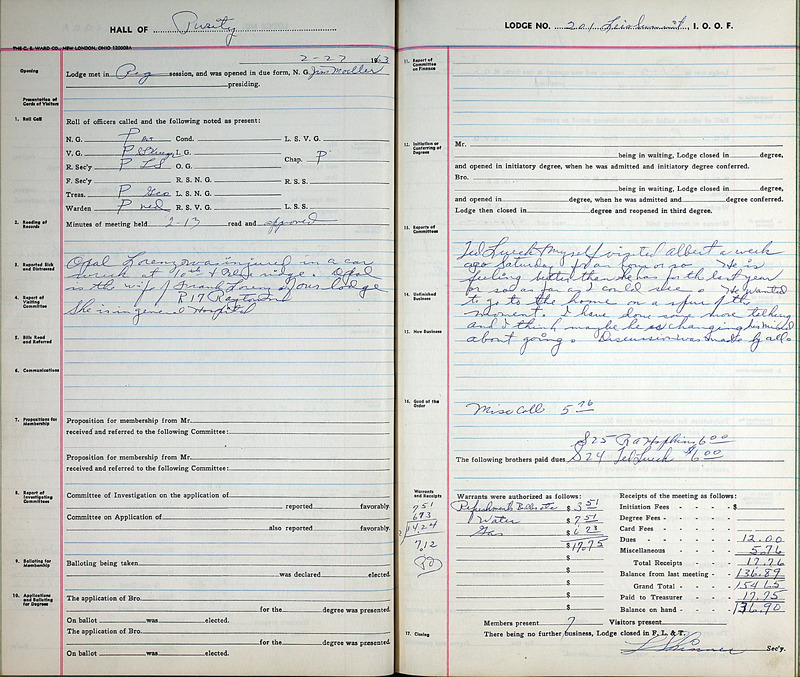 HALL OF Purity
THE C. E. WARD CO., NEW LONDON, OHIO
2-27 1963
Opening
Lodge met in Reg session, and was opened in due form, N. G. Jim Moeller
presiding.
Presentation of Cards of Visitors
1. Roll Call
Roll of officers called and the following noted as present:
N. G. P Cond. L. S. V. G.
V. G. P I. G.
R. Sec'y P LS O. G. Chap. P
F. Sec'y R. S. N. G. R. S. S.
Treas. P Geo L. S. N. G.
Warden P Ned R. S. V. G. L. S. S.
2. Reading of Records
Minutes of meeting held 2-13 read and approved
3. Reported Sick and Distressed
Opal Lorenz was injured in a car
wreck at 10th & . Opal
is the wife of Frank Lorenz of our lodge
R 17
She is in general Hospital
4. Report of Visiting Committee
5. Bills Read and Referred
6. Communications
7. Propositions for Membership
Proposition for membership from Mr.
received and referred to the following Committee:
Proposition for membership from Mr.
received and referred to the following Committee:
8. Report of Investigating Committees
Committee of Investigation on the application of
reported favorably.
Committee on Application of
also reported favorably.
9. Balloting for Membership
Balloting being taken
was declared elected.
10. Applications and Balloting for Degrees
The application of Bro.
for the degree was presented.
On ballot was elected.
The application of Bro.
for the degree was presented.
On ballot was elected.
LODGE NO. 201 , I. O. O. F.
11. Report of Committee on Finance
12. Initiation or Conferring of Degrees
Mr.
being in waiting, Lodge closed in degree,
and opened in initiatory degree, when he was admitted and initiatory degree conferred.
Bro.
being in waiting, Lodge closed in degree,
and opened in degree, when he was admitted and degree conferred.
Lodge then closed in degree and reopened in third degree.
13. Reports of Committees
Ted Lurch & myself visited Albert a week
ago Saturday for an hour or so. He is
feeling better than he has for the last year
or so as far as I could see. He wanted
to go to the home on a spur of the
moment. I have done some more talking
and I think maybe he is changing his mind
about going. Discussion was made by all.
14. Unfinished Business
15. New Business
16. Good of the Order
Misc Coll 5 76
825 R A Hopkins 6 00
The following brothers paid dues 824 Ted Lurch $6 00
Warrants and Receipts
Warrants were authorized as follows:
Refreshment $ 3 51
Water $ 7 51
Gas $ 6 73
$ 17.75
7 51
6 73
2/14.24
7.12
Receipts of the meeting as follows:
Initiation Fees - - - - $
Degree Fees - - - -
Card Fees - - - -
Dues - - - - 12.00
Miscellaneous - - - - 5.76
Total Receipts - - 17.76
Balance from last meeting - 136.89
Grand Total - - 154.65
Paid to Treasurer - - 17.75
Balance on hand - - 136.90
Members present 7 Visitors present
17. Closing
There being no further business, Lodge closed in F., L. & T.
Sec'y.